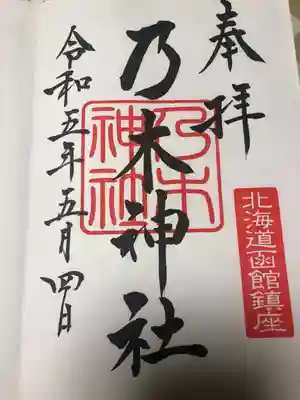 奉拝
北海道函館鎮座
乃木神社
乃木神社
令和五年五月四日